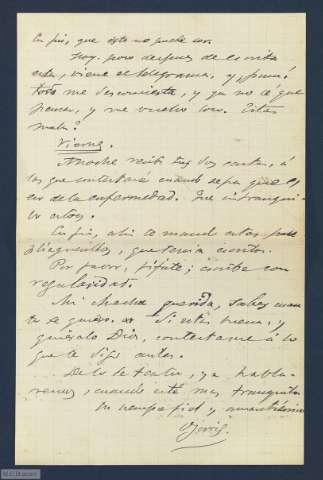 En fin, que esto no puede ser.
Hoy, poco despues de escrita
esta, viene el telegrama, y, ¡pum!
todo me desconcierta, y ya no sé que
pensar, y me vuelvo loco. Estás
mala?
Viernes.
Anoche recibí tus dos cartas, á
las que contestaré cuando sepa que es
eso de la enfermedad. Me intranqui
lizo
En fin, ahi te mando estos
pliegucitos, que tenía escritos.
Por favor, fíjate; escribe con
regularidad.
Mi chacha querida, sabes cuan
to te quiero. Si estás buena, y
quiéralo Dios, contéstame á lo
que te digo antes.
De lo de teatro, ya habla-
remos, cuando esté mas tranquilo
Tu siempre fiel y amantísimo